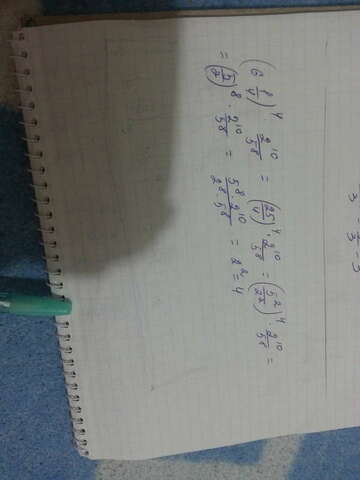 (6 8/4)⁴ 2¹⁰/5⁸ = (25/4)⁴ · 2¹⁰/5⁸ = (5²/2²)⁴ · 2¹⁰/5⁸ =
= (5/2)⁸ · 2¹⁰/5⁸ = 5⁸ · 2¹⁰/2⁸ · 5⁸ = 2² = 4